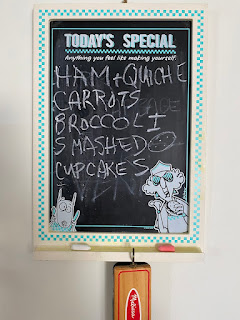 TODAY'S SPECIAL
Anything you feel like making yourself.
HAM + QUICHE
CARROTS
BROCCOLI
SMASHED
CUPCAKES